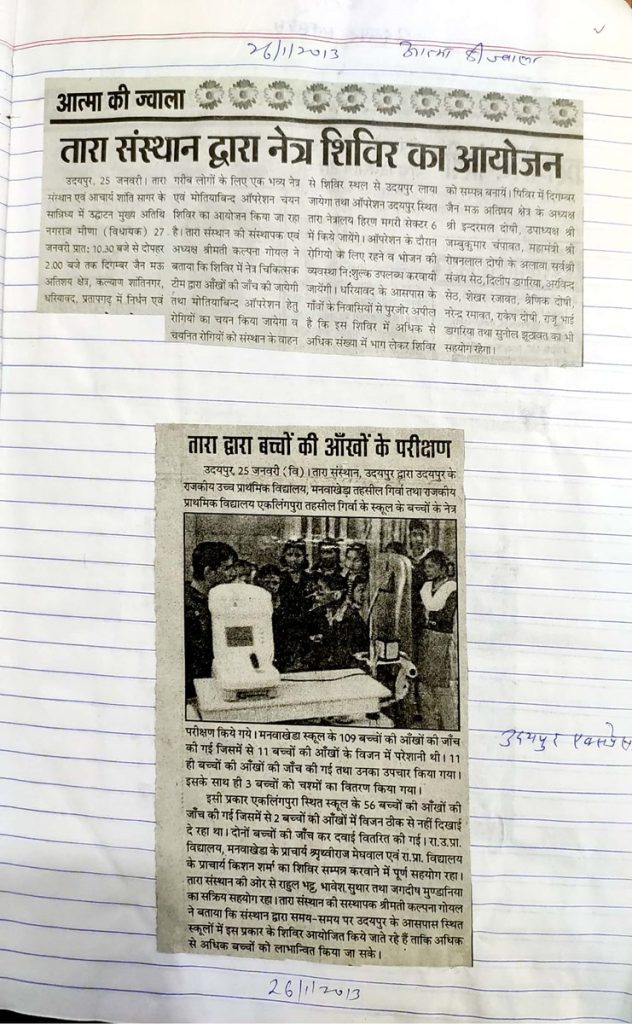 26/1/2013 आत्मा की ज्वाला
आत्मा की ज्वाला
तारा संस्थान द्वारा नेत्र शिविर का आयोजन
उदयपुर, 25 जनवरी। तारा
संस्थान एवं आचार्य शांति सागर के
सान्निध्य में उद्घाटन मुख्य अतिथि
नगराज मीणा (विधायक) 27
जनवरी प्रात: 10.30 बजे से दोपहर
2.00 बजे तक दिगम्बर जैन मऊ
अतिशय क्षेत्र, कल्याण शांतिनगर,
धरियावद, प्रतापगढ़ में निर्धन एवं
गरीब लोगों के लिए एक भव्य नेत्र
एवं मोतियाबिन्द ऑपरेशन चयन
शिविर का आयोजन किया जा रहा
है। तारा संस्थान की संस्थापक एवं
अध्यक्ष श्रीमती कल्पना गोयल ने
बताया कि शिविर में नेत्र चिकित्सक
टीम द्वारा आँखों की जाँच की जायेगी
तथा मोतियाबिन्द ऑपरेशन हेतु
रोगियों का चयन किया जायेगा व
चयनित रोगियों को संस्थान के वाहन
से शिविर स्थल से उदयपुर लाया
जायेगा तथा ऑपरेशन उदयपुर स्थित
तारा नेत्रालय हिरण मगरी सेक्टर 6
में किये जायेंगे। ऑपरेशन के दौरान
रोगियों के लिए रहने व भोजन की
व्यवस्था नि:शुल्क उपलब्ध करवायी
जायेंगी। धरियावद के आसपास के
गाँवों के निवासियों से पुरजोर अपील
है कि इस शिविर में अधिक से
अधिक संख्या में भाग लेकर शिविर
को सम्पन्न बनायें। शिविर में दिगम्बर
जैन मऊ अतिषय क्षेत्र के अध्यक्ष
श्री इन्दरमल दोषी, उपाध्यक्ष श्री
जम्बुकुमार चंपावत, महामंत्री श्री
रोषनलाल दोषी के अलावा सर्वश्री
संजय सेठ, दिलीप डागरिया, अरविन्द
सेठ, शेखर रजावत, श्रेणिक दोषी,
नरेन्द्र रमावत, राकेष दोषी, राजू भाई
डागरिया तथा सुनील झूठावत का भी
सहयोग रहेगा।
तारा द्वारा बच्चों की आँखों के परीक्षण
उदयपुर, 25 जनवरी (वि)। तारा संस्थान, उदयपुर द्वारा उदयपुर के
राजकीय उच्च प्राथमिक विद्यालय, मनवाखेड़ा तहसील गिर्वा तथा राजकीय
प्राथमिक विद्यालय एकलिंगपुरा तहसील गिर्वा के स्कूल के बच्चों के नेत्र
परीक्षण किये गये। मनवाखेडा स्कूल के 109 बच्चों की आँखों की जाँच
की गई जिसमें से 11 बच्चों की आँखों के विजन में परेशानी थी। 11
ही बच्चों की आँखों की जाँच की गई तथा उनका उपचार किया गया।
इसके साथ ही 3 बच्चों को चश्मों का वितरण किया गया।
इसी प्रकार एकलिंगपुरा स्थित स्कूल के 56 बच्चों की आँखों की
जाँच की गई जिसमें से 2 बच्चों की आँखों में विजन ठीक से नहीं दिखाई
दे रहा था। दोनों बच्चों की जाँच कर दवाई वितरित की गई। रा.उ.प्रा.
विद्यालय, मनवाखेडा के प्राचार्य श्र्पृथ्वीराज मेघवाल एवं रा.प्रा. विद्यालय
के प्राचार्य किशन शर्मा का शिविर सम्पन्न करवाने में पूर्ण सहयोग रहा।
तारा संस्थान की ओर से राहुल भट्ट, भावेश सुथार तथा जगदीप मुण्डानिया
का सक्रिय सहयोग रहा। तारा संस्थान की सस्थापक श्रीमती कल्पना गोयल
ने बताया कि संस्थान द्वारा समय-समय पर उदयपुर के आसपास स्थित
स्कूलों में इस प्रकार के शिविर आयोजित किये जाते रहे हैं ताकि अधिक
से अधिक बच्चों को लाभान्वित किया जा सके।
उदयपुर एक्सप्रेस
26/1/2013